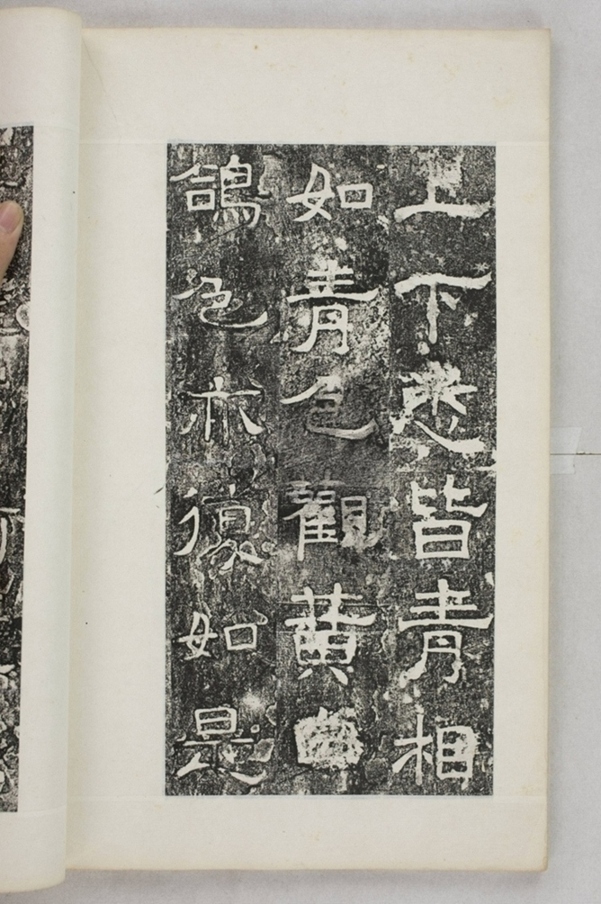 上下悉皆青相
如青色觀黃
鴿色亦復如是